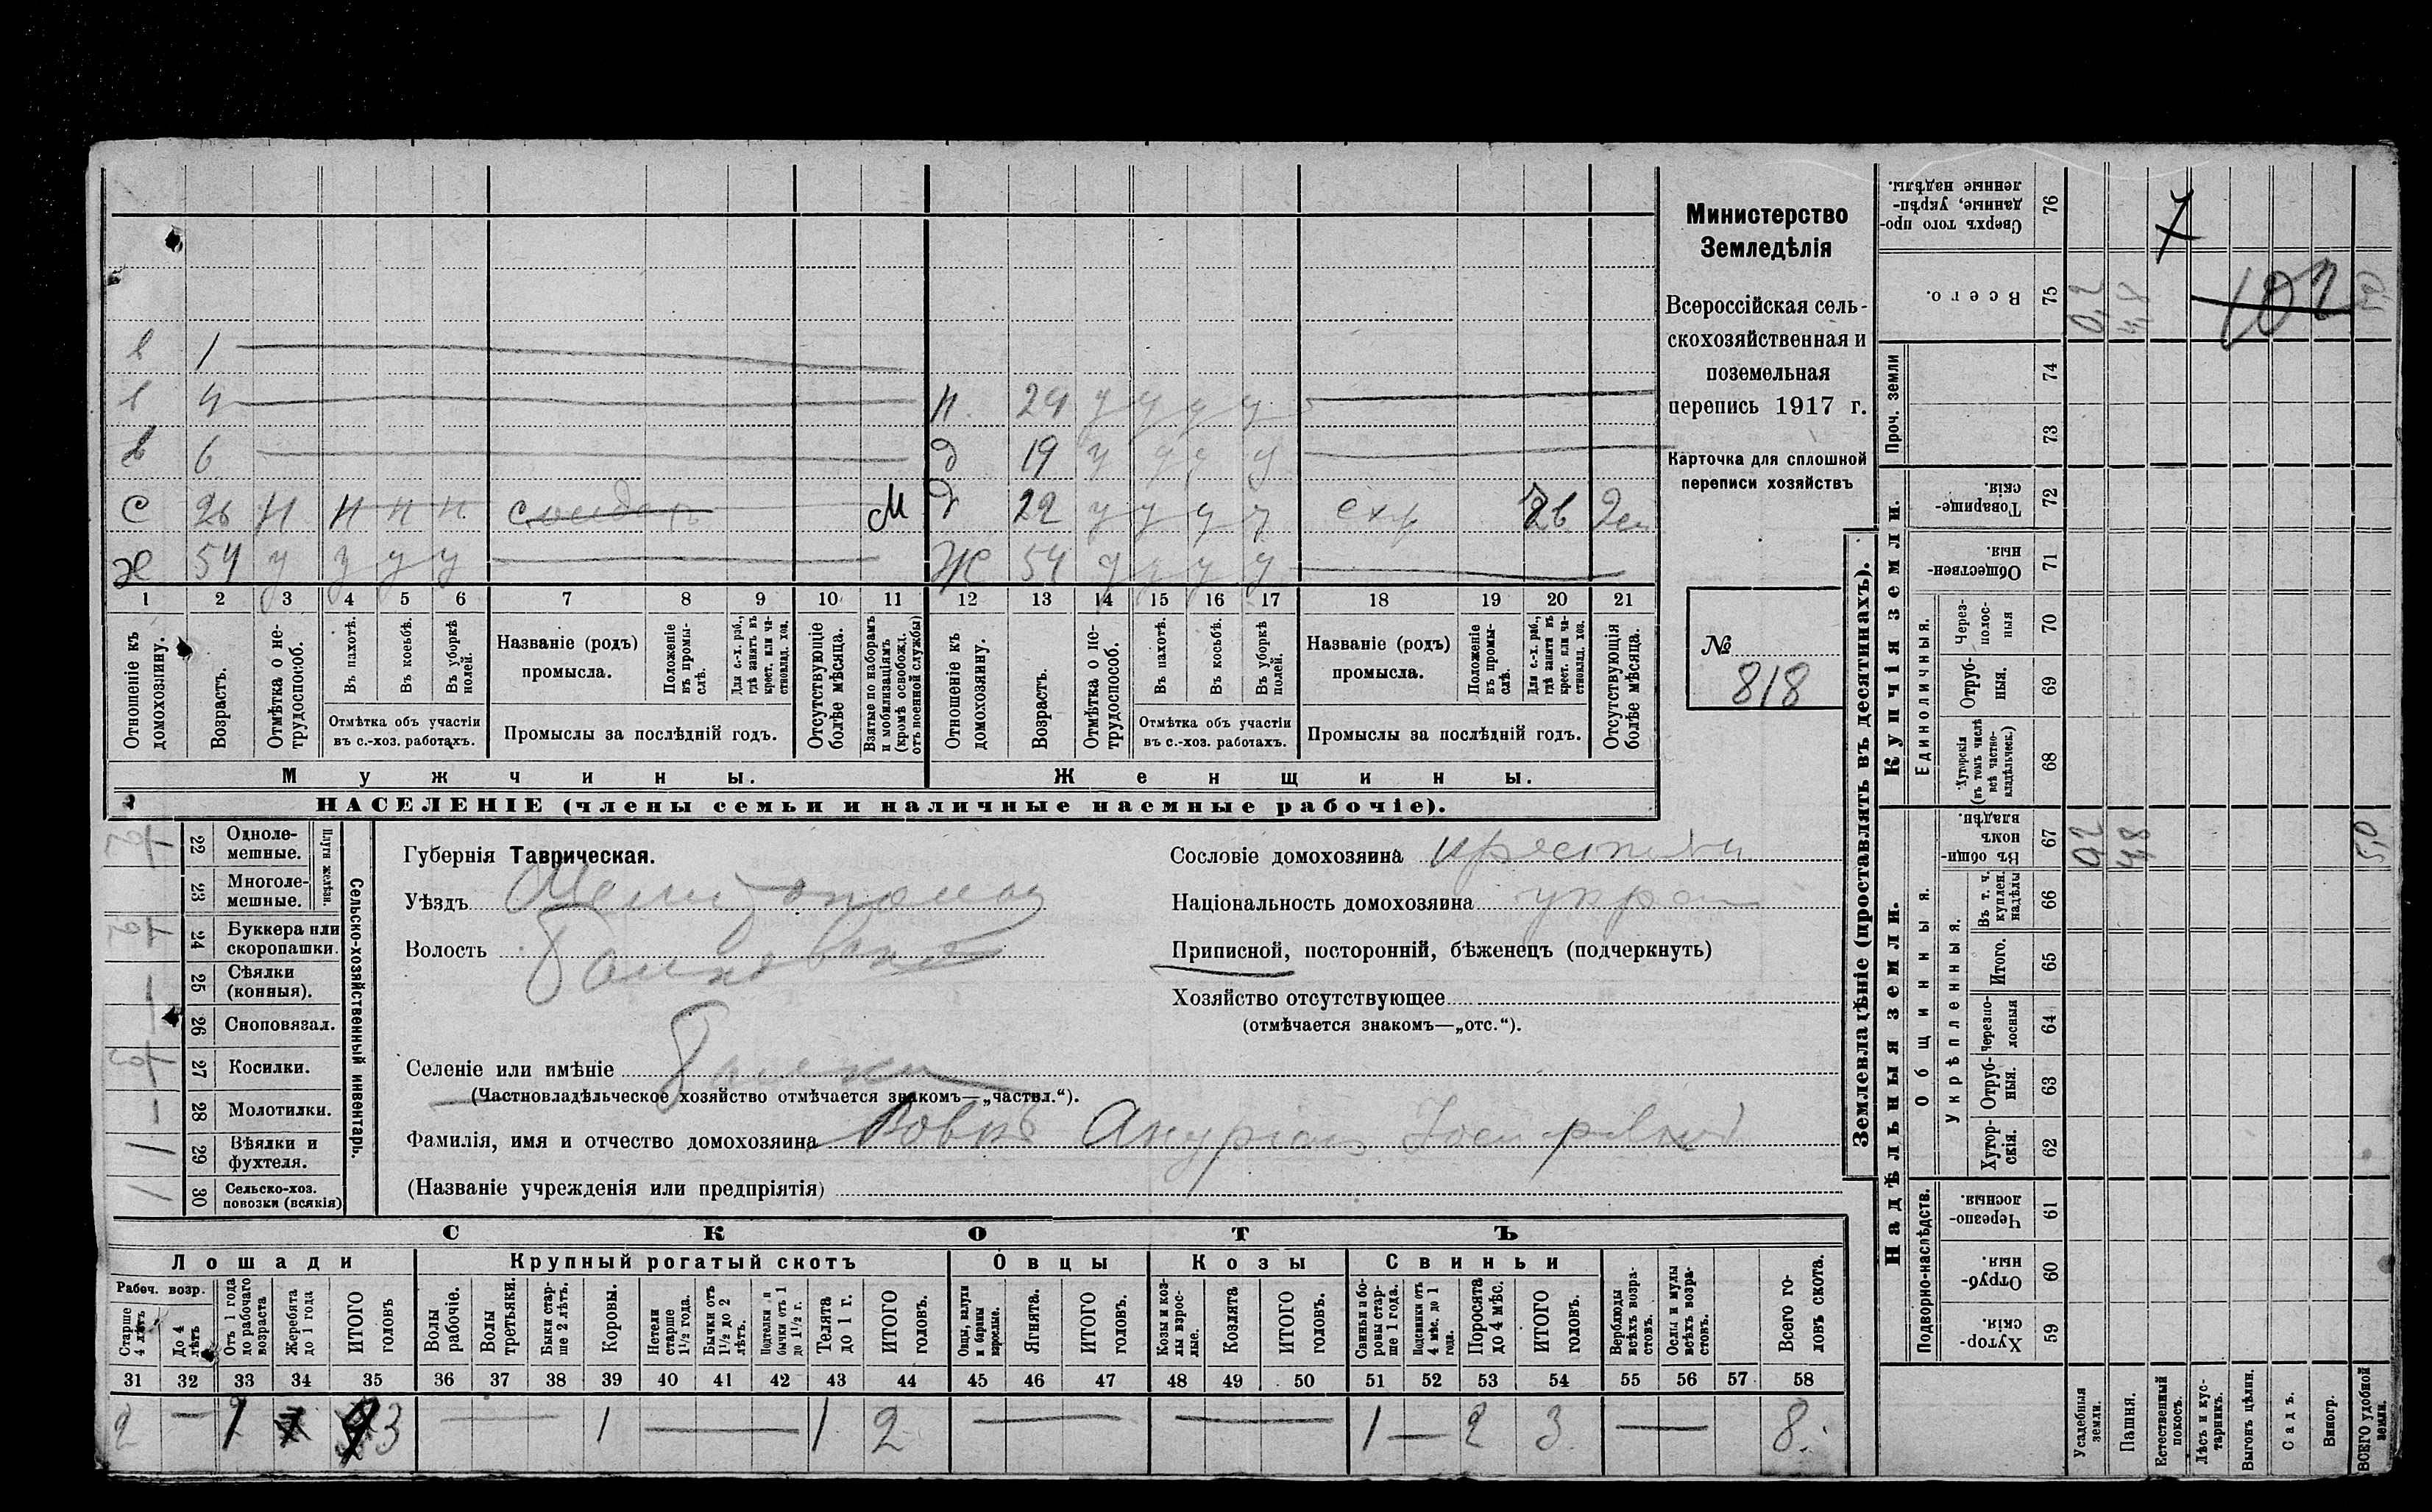 Министерство
Земледѣлія
Всероссійская сель-
скохозяйственная и
поземельная
перепись 1917 г.
Карточка для сплошной
переписи хозяйствъ
№
818
в 1
в 4
в 6
с 26 н н н н М
х 54 у у у у
н. 24 у у у у
д 19 у у у у
22 у у у у
Ж 54 у у у у
1 2 3 4 5 6 7 8 9 10 11 12 13 14 15 16 17 18 19 20 21
Отношеніе къ домохозяину.
Возрастъ.
Отмѣтка о не-трудоспособ.
Въ пахотѣ.
Въ косьбѣ.
Въ уборкѣ полей.
Отмѣтка объ участіи
въ с.-хоз. работахъ.
Названіе (родъ)
промысла.
Положеніе въ промы-слѣ.
Для с.-х. раб., гдѣ занятъ въ крест. или ча-стновлад. хоз.
Промыслы за послѣдній годъ.
Отсутствующіе болѣе мѣсяца.
Взятые по наборамъ и мобилизаціямъ (кромѣ освобожд. отъ военной службы)
Отношеніе къ домохозяину.
Возрастъ.
Отмѣтка о не-трудоспособ.
Въ пахотѣ.
Въ косьбѣ.
Въ уборкѣ полей.
Отмѣтка объ участіи
въ с.-хоз. работахъ.
Названіе (родъ)
промысла.
Положеніе въ промы-слѣ.
Для с.-х. раб., гдѣ занята въ крест. или ча-стновлад. хоз.
Промыслы за послѣдній годъ.
Отсутствующія болѣе мѣсяца.
Мужчины. Женщины.
НАСЕЛЕНІЕ (члены семьи и наличные наемные рабочіе).
Сельско-хозяйственный инвентарь.
Плуги желѣзн.
22 Одноле-мешные.
23 Многоле-мешные.
24 Буккера или скоропашки.
25 Сѣялки (конныя).
26 Сноповязал.
27 Косилки.
28 Молотилки.
29 Вѣялки и фухтеля. 1
30 Сельско-хоз. повозки (всякія) 1
Губернія Таврическая.
Уѣздъ Мелитопольск
Волость Балковская
Селеніе или имѣніе Балки
(Частновладѣльческое хозяйство отмѣчается знакомъ—„частвл.“).
Фамилія, имя и отчество домохозяина Вовкъ
(Названіе учрежденія или предпріятія)
Сословіе домохозяина крестьян
Національность домохозяина украин
Приписной, посторонній, бѣженецъ (подчеркнуть)
Хозяйство отсутствующее
(отмѣчается знакомъ—„отс.“).
СКОТЪ
Лошади Крупный рогатый скотъ Овцы Козы Свиньи
Рабоч. возр.
Старше 4 лѣтъ
До 4 лѣтъ
Отъ 1 года до рабочаго возраста
Жеребята до 1 года
ИТОГО головъ
Волы рабочіе.
Волы третьяки.
Быки стар-ше 2 лѣтъ.
Коровы.
Нетели старше 1½ года.
Бычки отъ 1½ до 2 лѣтъ.
Подтелки и бычки отъ 1 до 1½ г.
Телята до 1 г.
ИТОГО головъ.
Овцы, валухи и бараны взрослые.
Ягнята.
ИТОГО головъ.
Козы и коз-лы взрос-лые.
Козлята
ИТОГО головъ.
Свиньи и бо-ровы стар-ше 1 года.
Подсвинки отъ 4 мѣс. до 1 года.
Поросята до 4 мѣс.
ИТОГО головъ.
Верблюды всѣхъ возра-стовъ.
Ослы и мулы всѣхъ возра-стовъ.
Всего го-ловъ скота.
31 32 33 34 35 36 37 38 39 40 41 42 43 44 45 46 47 48 49 50 51 52 53 54 55 56 57 58
2 — 1 3 — 1 — 1 2 — — 1 — 2 3 — 8.
Землевладѣніе (проставлять въ десятинахъ).
Сверхъ того про-данные, укрѣп-ленные надѣлы. 76 7
Всего. 75 0,2 4,8 102
Проч. земли
74
73
Купчія земли.
Товарище-скія. 72
Обществен-ныя. 71
Единоличныя.
Через-полос-ныя 70
Отруб-ныя. 69
Хуторскія (въ томъ числѣ всѣ частно-владѣльческ.) 68
Надѣльныя земли.
Общинныя.
Въ общин-номъ владѣн. 67 0,2 4,8 5,0
Укрѣпленныя.
Въ т. ч. куплен. надѣлы 66
Итого. 65
Черезпо-лосныя 64
Отруб-ныя. 63
Хутор-скія. 62
Подворно-наслѣдств.
Черезпо-лосныя. 61
Отруб-ныя. 60
Хутор-скія. 59
Усадебныя земли.
Пашня.
Естественный покосъ.
Лѣсъ и кус-тарникъ.
Выгонъ цѣлин.
Садъ.
Виногр.
ВСЕГО удобной земли.